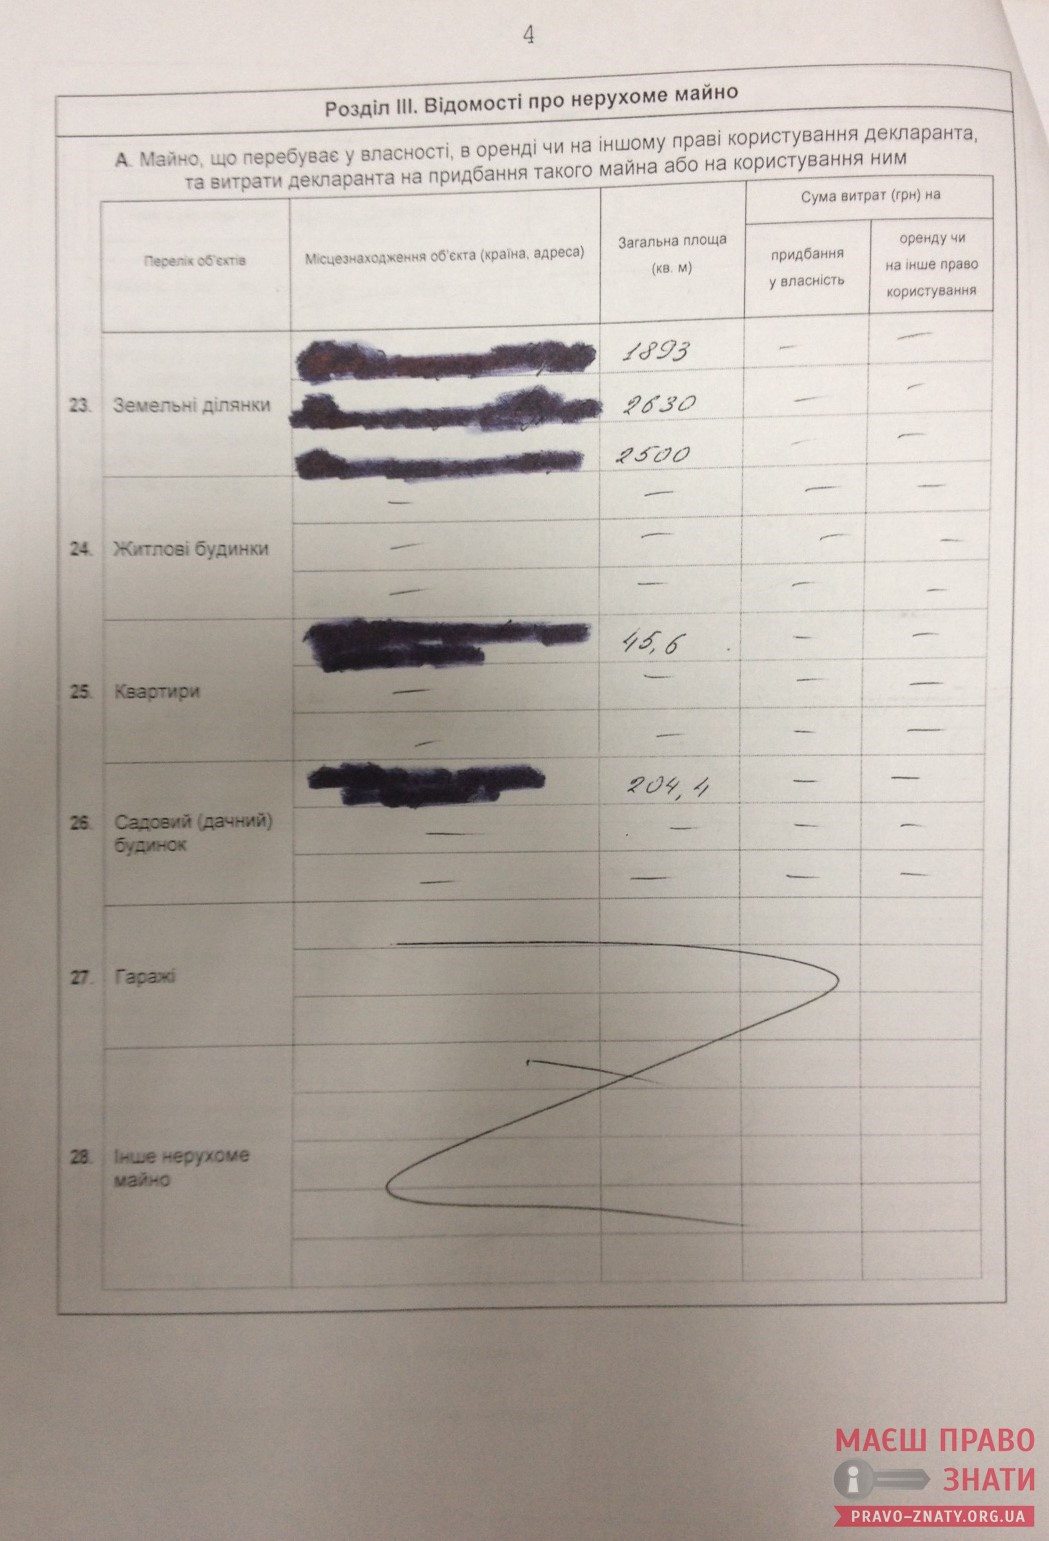 4
Розділ III. Відомості про нерухоме майно
А. Майно, що перебуває у власності, в оренді чи на іншому праві користування декларанта,
та витрати декларанта на придбання такого майна або на користування ним
Перелік об'єктів
Місцезнаходження об'єкта (країна, адреса)
Загальна площа
(кв. м)
Сума витрат (грн) на
придбання
у власність
оренду чи
на інше право
користування
23. Земельні ділянки
1893 — —
2630 — —
2500 — —
24. Житлові будинки
— — — —
— — — —
— — — —
25. Квартири
45,6 — —
— — — —
— — — —
26. Садовий (дачний)
будинок
204,4 — —
— — — —
— — — —
27. Гаражі
28. Інше нерухоме
майно
МАЄШ ПРАВО
ЗНАТИ
PRAVO-ZNATY.ORG.UA